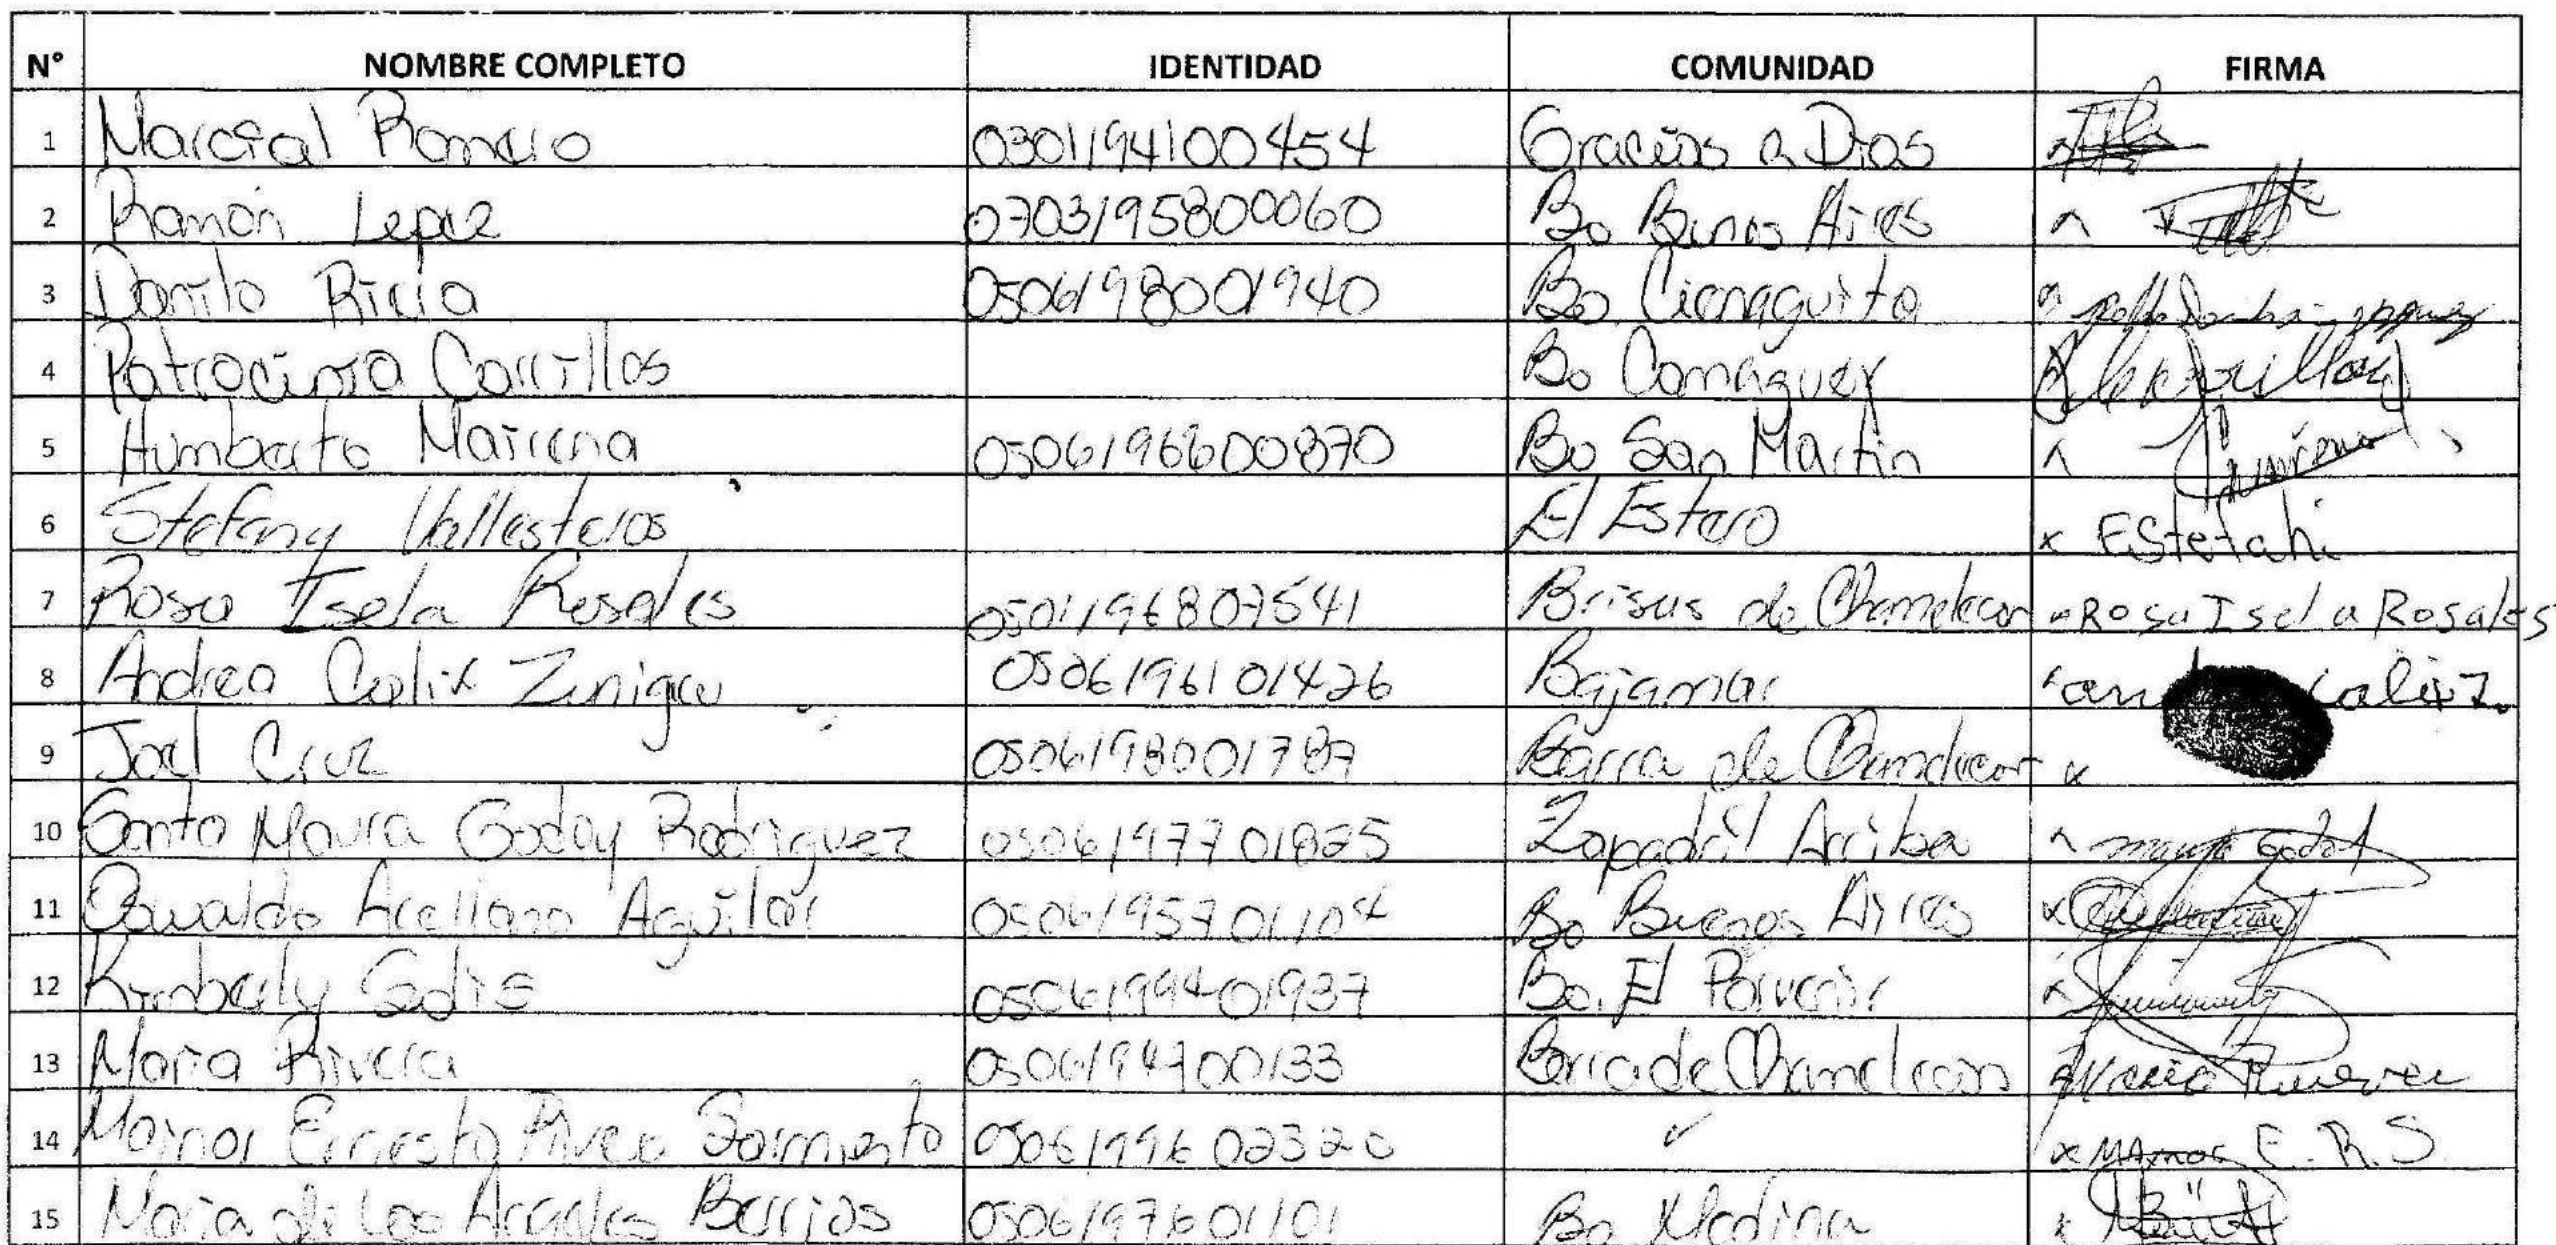 N° NOMBRE COMPLETO IDENTIDAD COMUNIDAD FIRMA
1 Marcial Romero 0301194100454 Gracias a Dios
2 Ramón Lopez 0703195800060 Bo Buenos Aires
3 Danilo 0506198001940 Bo Cienaguita
4 Patrocinia Carrillos Bo Camaguey
5 Humberto Mairena 0506196600870 Bo San Martin
6 Stefany Vallesteros El Estero x EStefani
7 Rosa Isela Rosales 0501196807541 Brisas de Chamelecon Rosa Isela Rosales
8 Andrea Calix Zuniga 0506196101426 Bajamar
9 Joel Cruz 0506198001787 Barra de Chamelecon x
10 Santa Maura Godoy Rodriguez 0506197701825 Zapadril Arriba
11 Oswaldo Arellano Aguilar 0506195701104 Bo Buenos Aires x
12 Kimberly Solis 0506199401937 Bo. El Porvenir x
13 Maria Rivera 0506194700133 Barra de Chamelecon
14 Mainor Ernesto Rivera Sarmiento 0506199602320 ✓ x MAynor E. R. S
15 Maria de Los Angeles Barrios 0506197601101 Bo Medina x